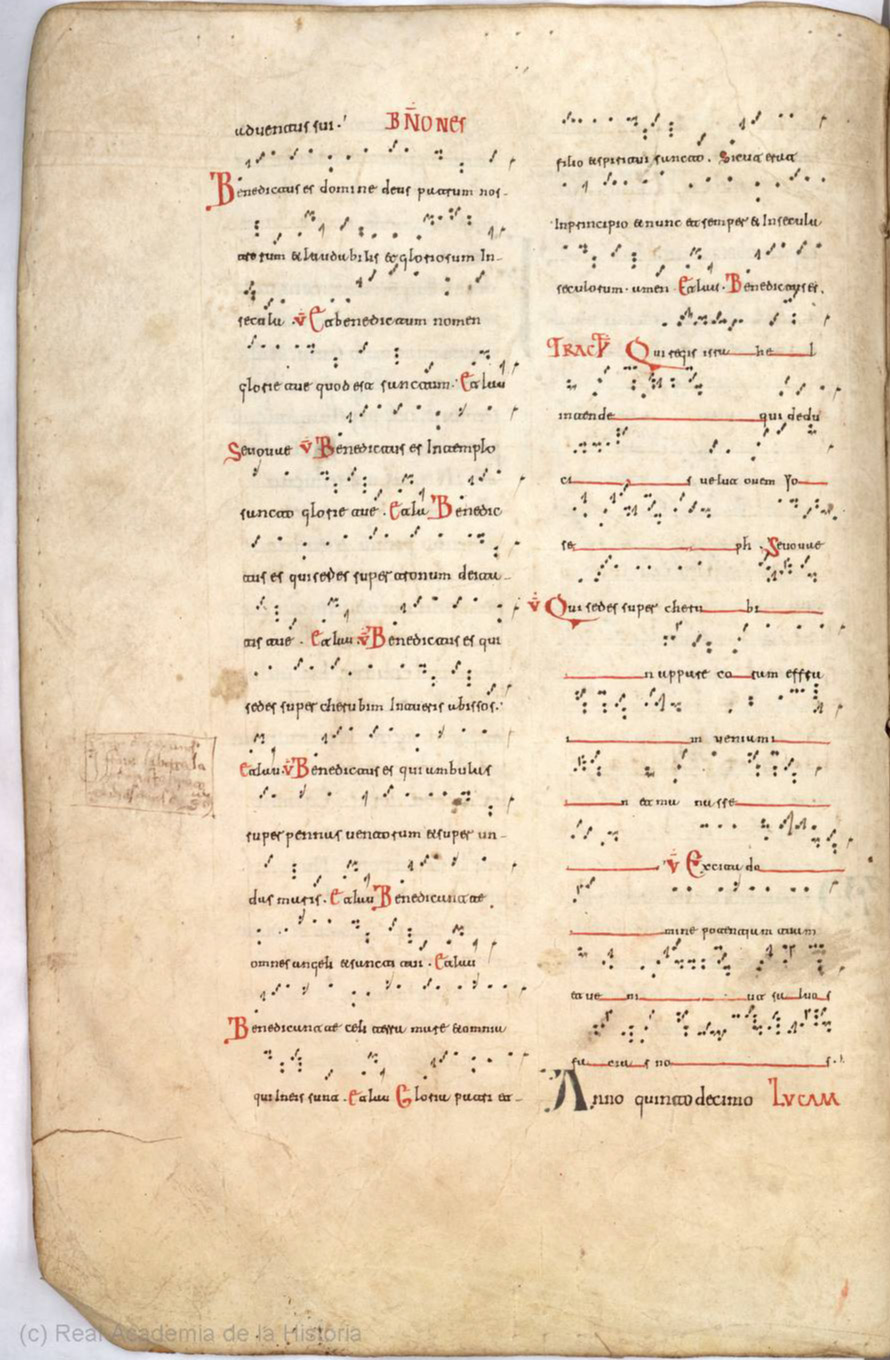 aduentus sui. BN̄ONES
Benedictus es domine deus patrum nos-
trorum & laudabilis & gloriosum In-
secula v Et benedictum nomen
glorie tue quod est sanctum. Et lau
Seuouae v Benedictus es In templo
sancto glorie tue. Et lau Benedic
tus es qui sedes super tronum deitau-
tis tue. Et lau v Benedictus es qui
sedes super cherubim Intueris abissos.
Et lau v Benedictus es qui ambulas
super pennas uentorum & super un-
das maris. Et lau Benedicant te
omnes angeli & sancti tui. Et lau
Benedicant te celi terra mare & omnia
que In eis sunt. Et lau Gloria patri et-
filio & spiritui sancto. Sicut erat
In principio & nunc et semper & In secula
seculorum. amen Et lau. Benedictus es.
TRACT Qui regis isra he l
intende qui dedu
cis uelut ouem Jo
se ph. Seuouae
v Qui sedes super cheru bi
n appare co ram effra
im beniami
n et ma nasse
v Excita do
mine potentiam tuam
et ue ni ut sa luo s
fa cia s no s.
Anno quinto decimo LUCAM
(c) Real Academia de la Historia